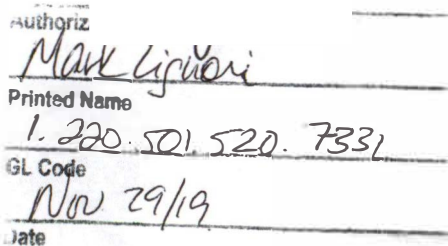 Authoriz
Mark Liguori
Printed Name
1. 220. 501. 520. 7331
GL Code
Nov 29/19
Date